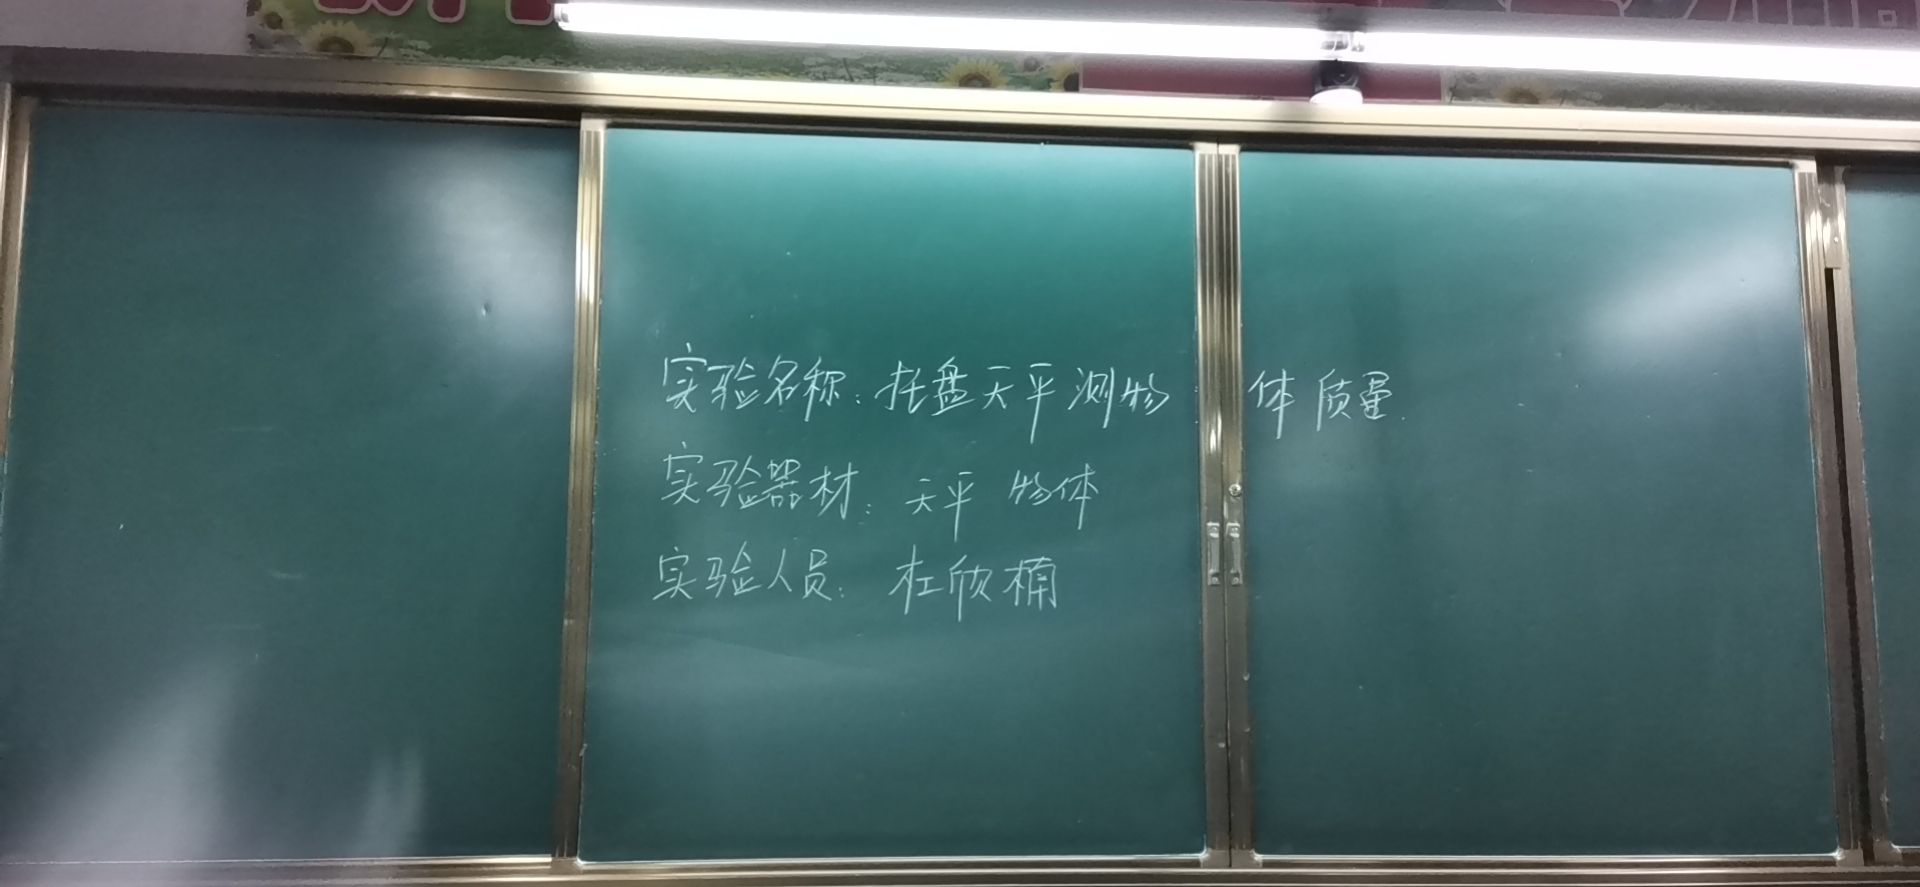 实验名称：托盘天平测物体质量.
实验器材：天平 物体
实验人员：杜欣桶